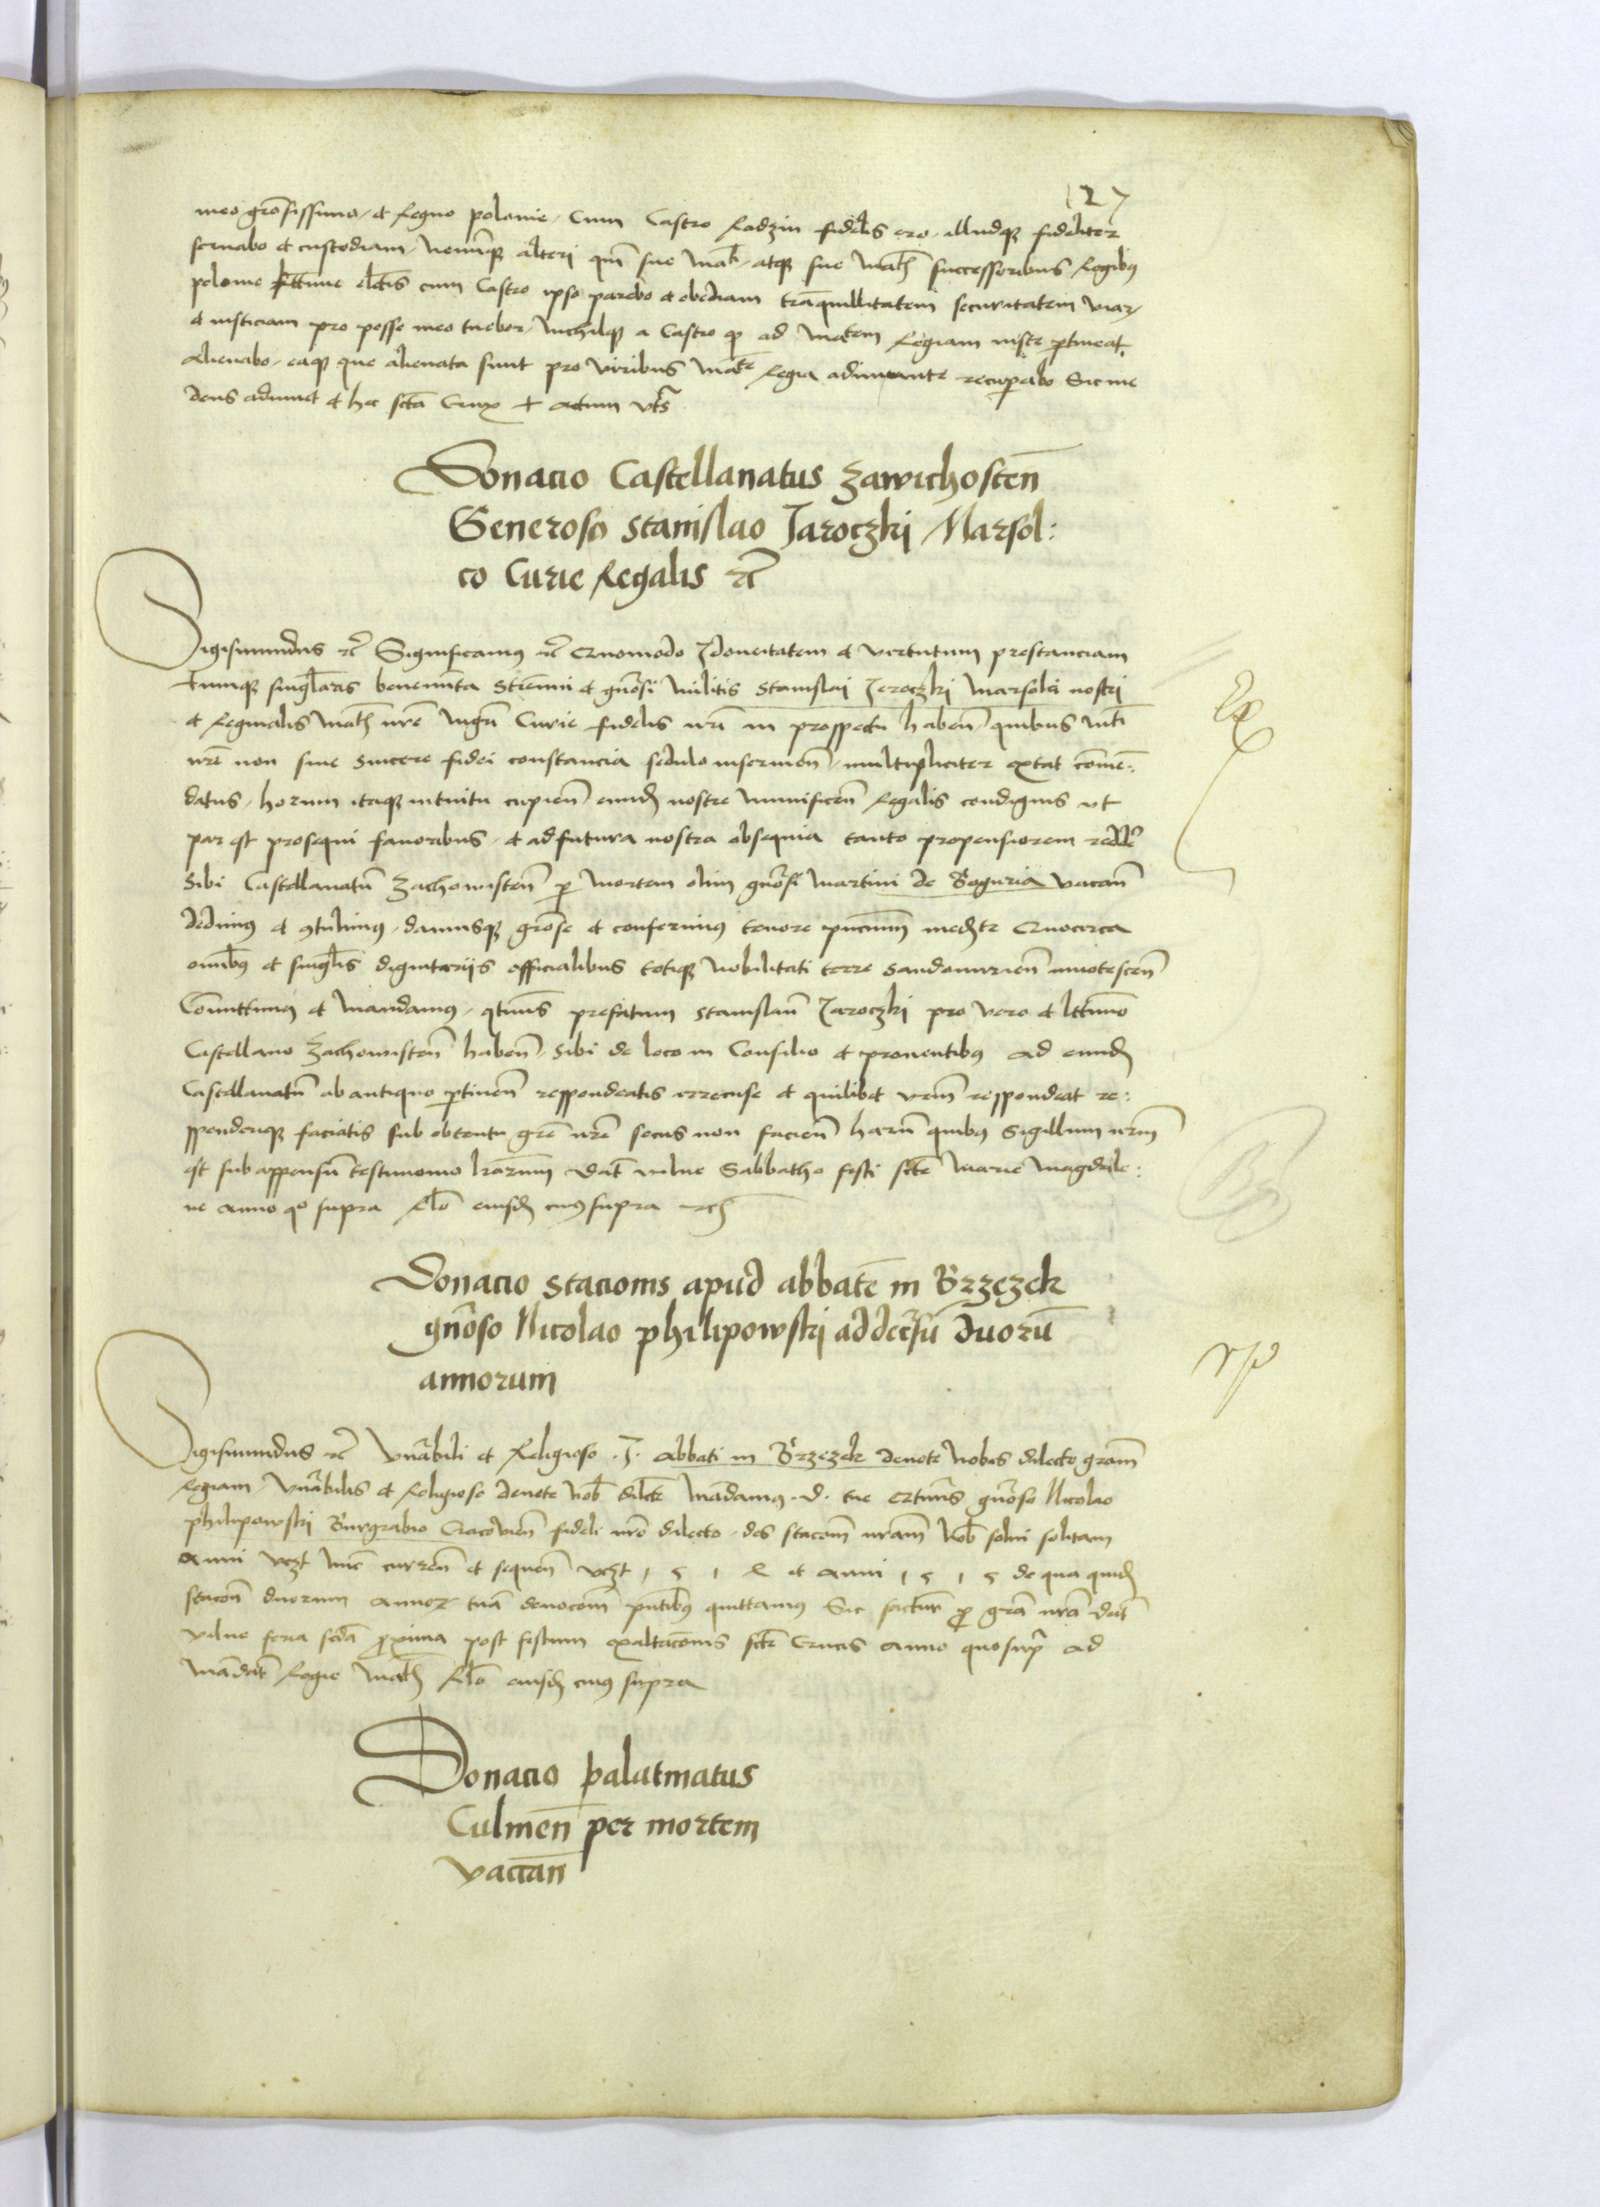 127
meo gronsissimo et Regno polonie Cum Castro Radzin fidelis ero illudq fideliter
servabo et custodiam Neminiq alteri qm sue Mati atq sue Math successoribus Regibus
polonie lttime electis cum Castro ipso parebo et obediam tranquillitatem securitatem viar
et iusticiam pro posse meo tuebor Nichilq a Castro qd ad Matem Regiam iuste ptineat
alienabo eaq que alienata sunt pro viribus Mate Regia adiuvante recuperabo Sic me
deus adiuvet et hec scta Crux + Actum vts
Donacio Castellanatus Zawichosten
Generoso Stanislao Jaroczki Marsol:
co Curie Regalis etc
Sigismundus etc Significamus etc Quomodo Idoneitatem et virtutum prestanciam
tumq singlaris benemerita Strenui et gnosi militis Stanislai Jeroczki Marsolci nostri
et Reginalis Math nre Curie fidelis nri in prospectu haben quibus Mti
nre non sine sincere fidei constancia sedulo inservien multipliciter extat comen:
datus horum itaq intuitu cupien eund nostre munificen Regalis condignis ut
par est prosequi favoribus et ad futura nostra obsequia tanto propensiorem reddere
Sibi Castellanatu Zachowisten p mortem olim gnosi Martini de Boguria vacan
dedimus et contulimus damusq grose et conferimus tenore pncium medte Quocirca
omibus et singlis dignitarijs officialibus totiq Nobilitati terre Sandomirien innotescen
Comittimus et Mandamus qtinus prefatum Stanislau Jaroczki pro vero et lttimo
Castellano Zachowisten haben sibi de loco in Consilio et proventibus ad eund
Castellanatu ab antiquo ptinen respondeatis et quilibet vrm respondeat re:
sponderiq faciatis sub obtentu gre nre secus non facien Haru quibus Sigillum nrm
est subappensu testimonio lrarum Dat vilne Sabbatho festi scte Marie Magdale:
ne Anno qo supra Rlo eiusd cuius supra
Donacio stacionis apud abbate in Brzezek
gnoso Nicolao philipowski ad decursu duoru
annorum
Sigismundus etc Vnrabili et Religioso .J. Abbati in Brzezek devote Nobis dilecto gram
Regiam Vnrabilis et Religiose devote Nob dilcte Mandamus d. tue Qtinus gnoso Nicolao
philipowski Burgrabio Cracovien fideli nro dilecto des stacoem nram Nob solvi solitam
Anni vczt nuc curren et sequen vczt 1 5 1 4 et Anni 1 5 1 5 de qua quid
stacoen duorum Annor tua devocoem pntibus quittamus Sic factur p gra nra Dat
vilne feria scda proxima post festum exaltacionis scte Crucis Anno quo supra Ad
Mandat Regie Math Rlo eiusd cuius supra
Donacio palatinatus
Culmen per mortem
vacan